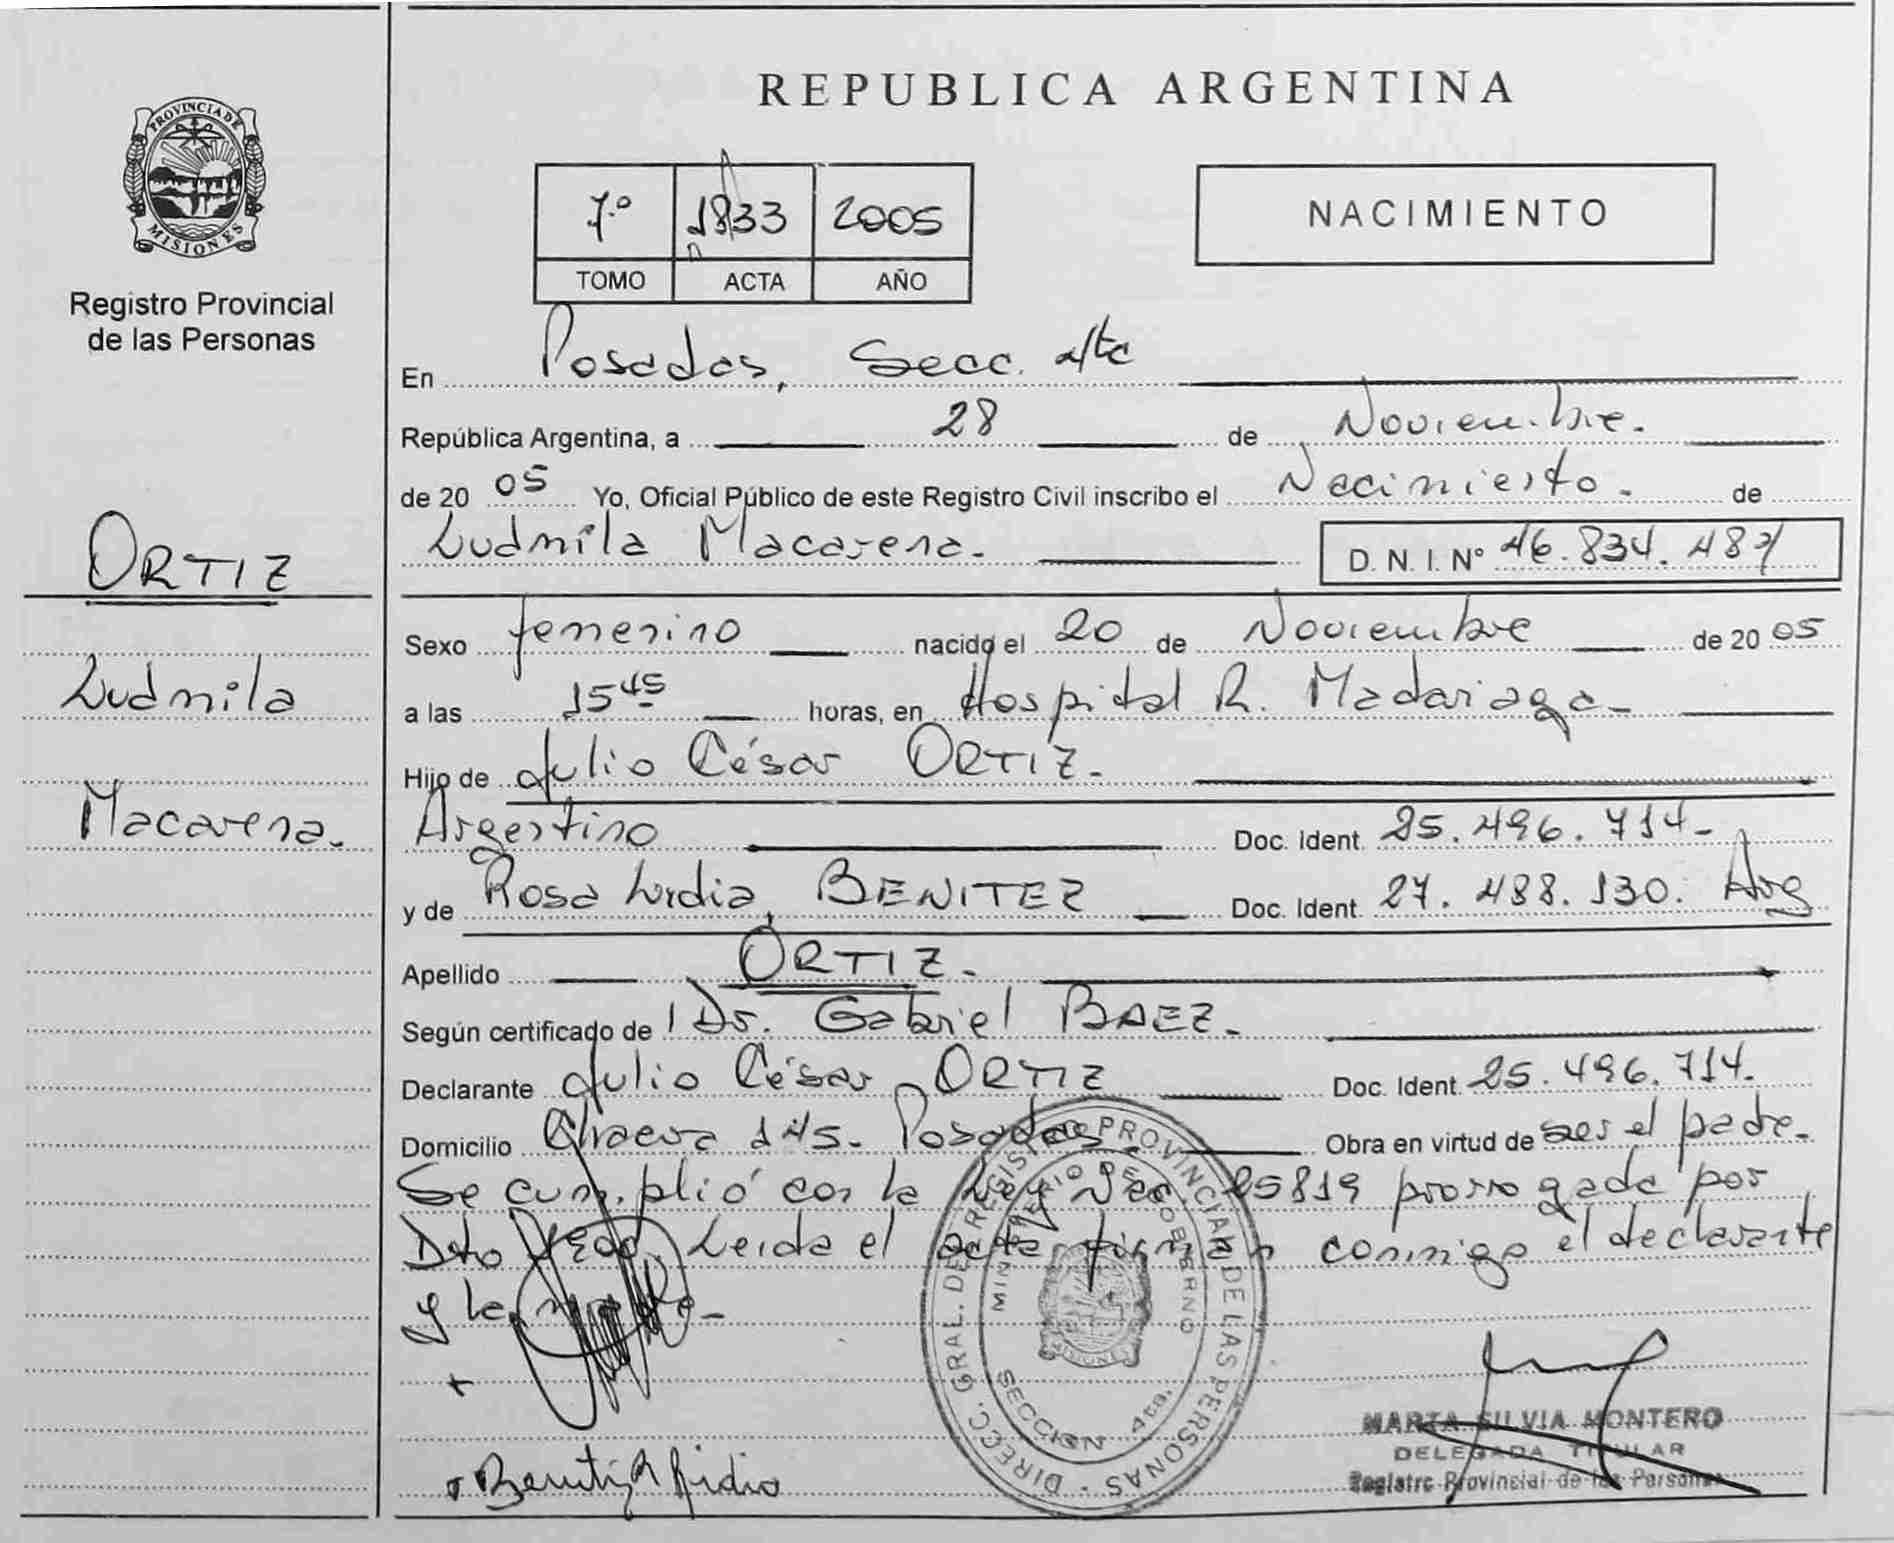 PROVINCIA DE
MISIONES
Registro Provincial
de las Personas
ORTIZ
Ludmila
Macarena.
REPUBLICA ARGENTINA
7º 1833 2005
TOMO ACTA AÑO
NACIMIENTO
En Posadas, Secc. 4ta
República Argentina, a 28 de Noviembre.
de 20 05 Yo, Oficial Público de este Registro Civil inscribo el Nacimiento. de
Ludmila Macarena. D. N. I. Nº 46.834.487
Sexo femenino nacido el 20 de Noviembre de 20 05
a las 15 45 horas, en Hospital R. Madariaga
Hijo de Julio César ORTIZ.
Argentino Doc. Ident. 25.496.714
y de Rosa Lidia BENITEZ Doc. Ident. 27.488.130. Arg
Apellido ORTIZ.
Según certificado de Dr. Gabriel BAEZ.
Declarante Julio César ORTIZ Doc. Ident. 25.496.714.
Domicilio 145. Posadas Obra en virtud de ser el padre.
Se cumplió con la Ley Nac. 25819 prorrogada por
Dto Leida el acta firman conmigo el declarante
y la madre
Benitez R Lidia
DIRECC. GRAL. DEL REGISTRO PROVINCIAL DE LAS PERSONAS
MINISTERIO DE GOBIERNO
SECCION 4ta.
MISIONES
MARTA SILVIA MONTERO
DELEGADA TITULAR
Registro Provincial de las Personas